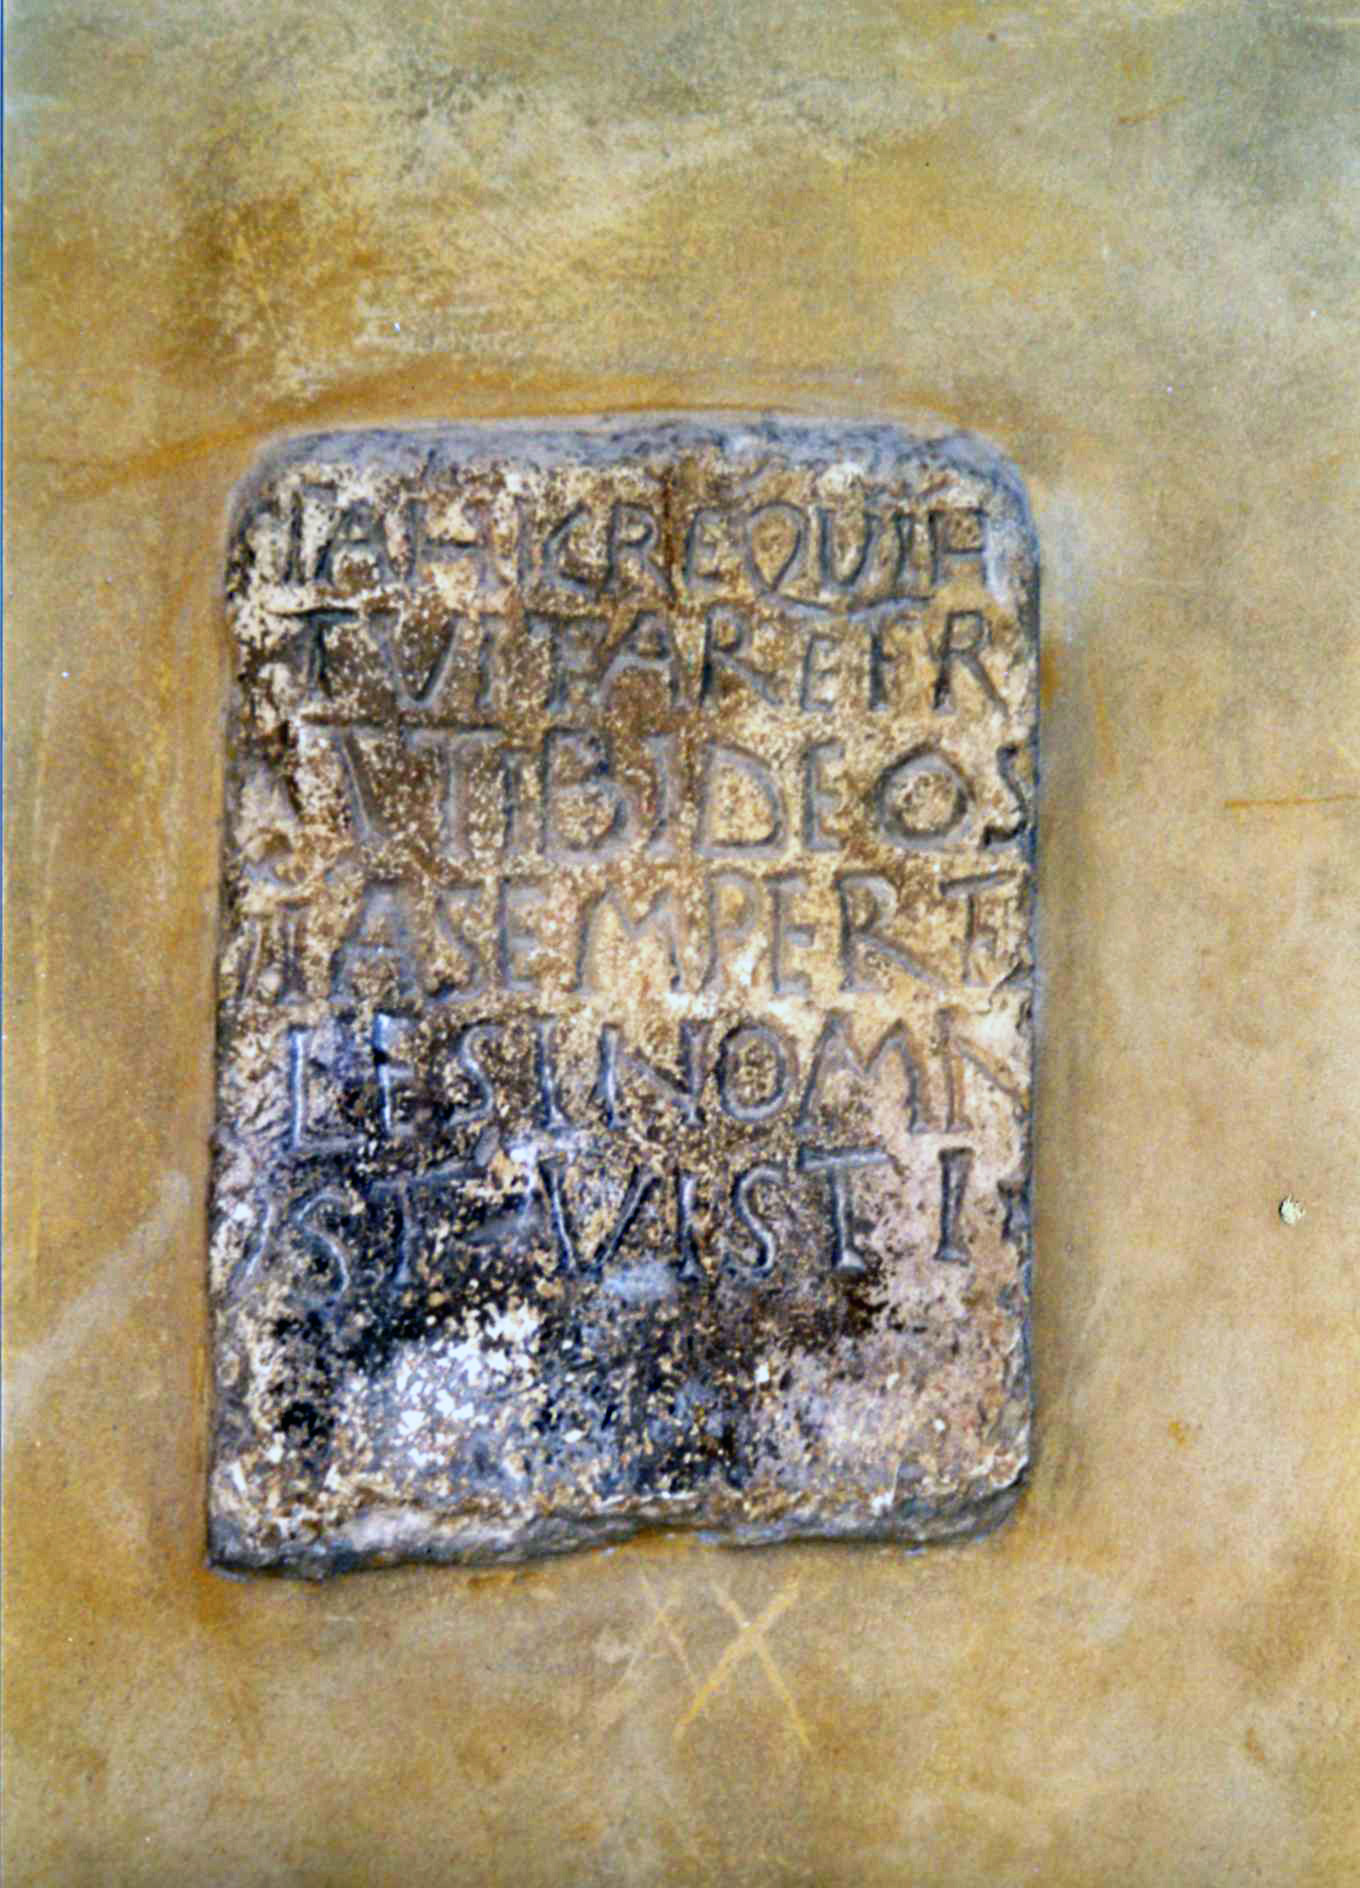 IAHICREQVIE
TVITFAREFR
VTIBIDEOS
ITASEMPERTE
LESINOMN
STVISTI